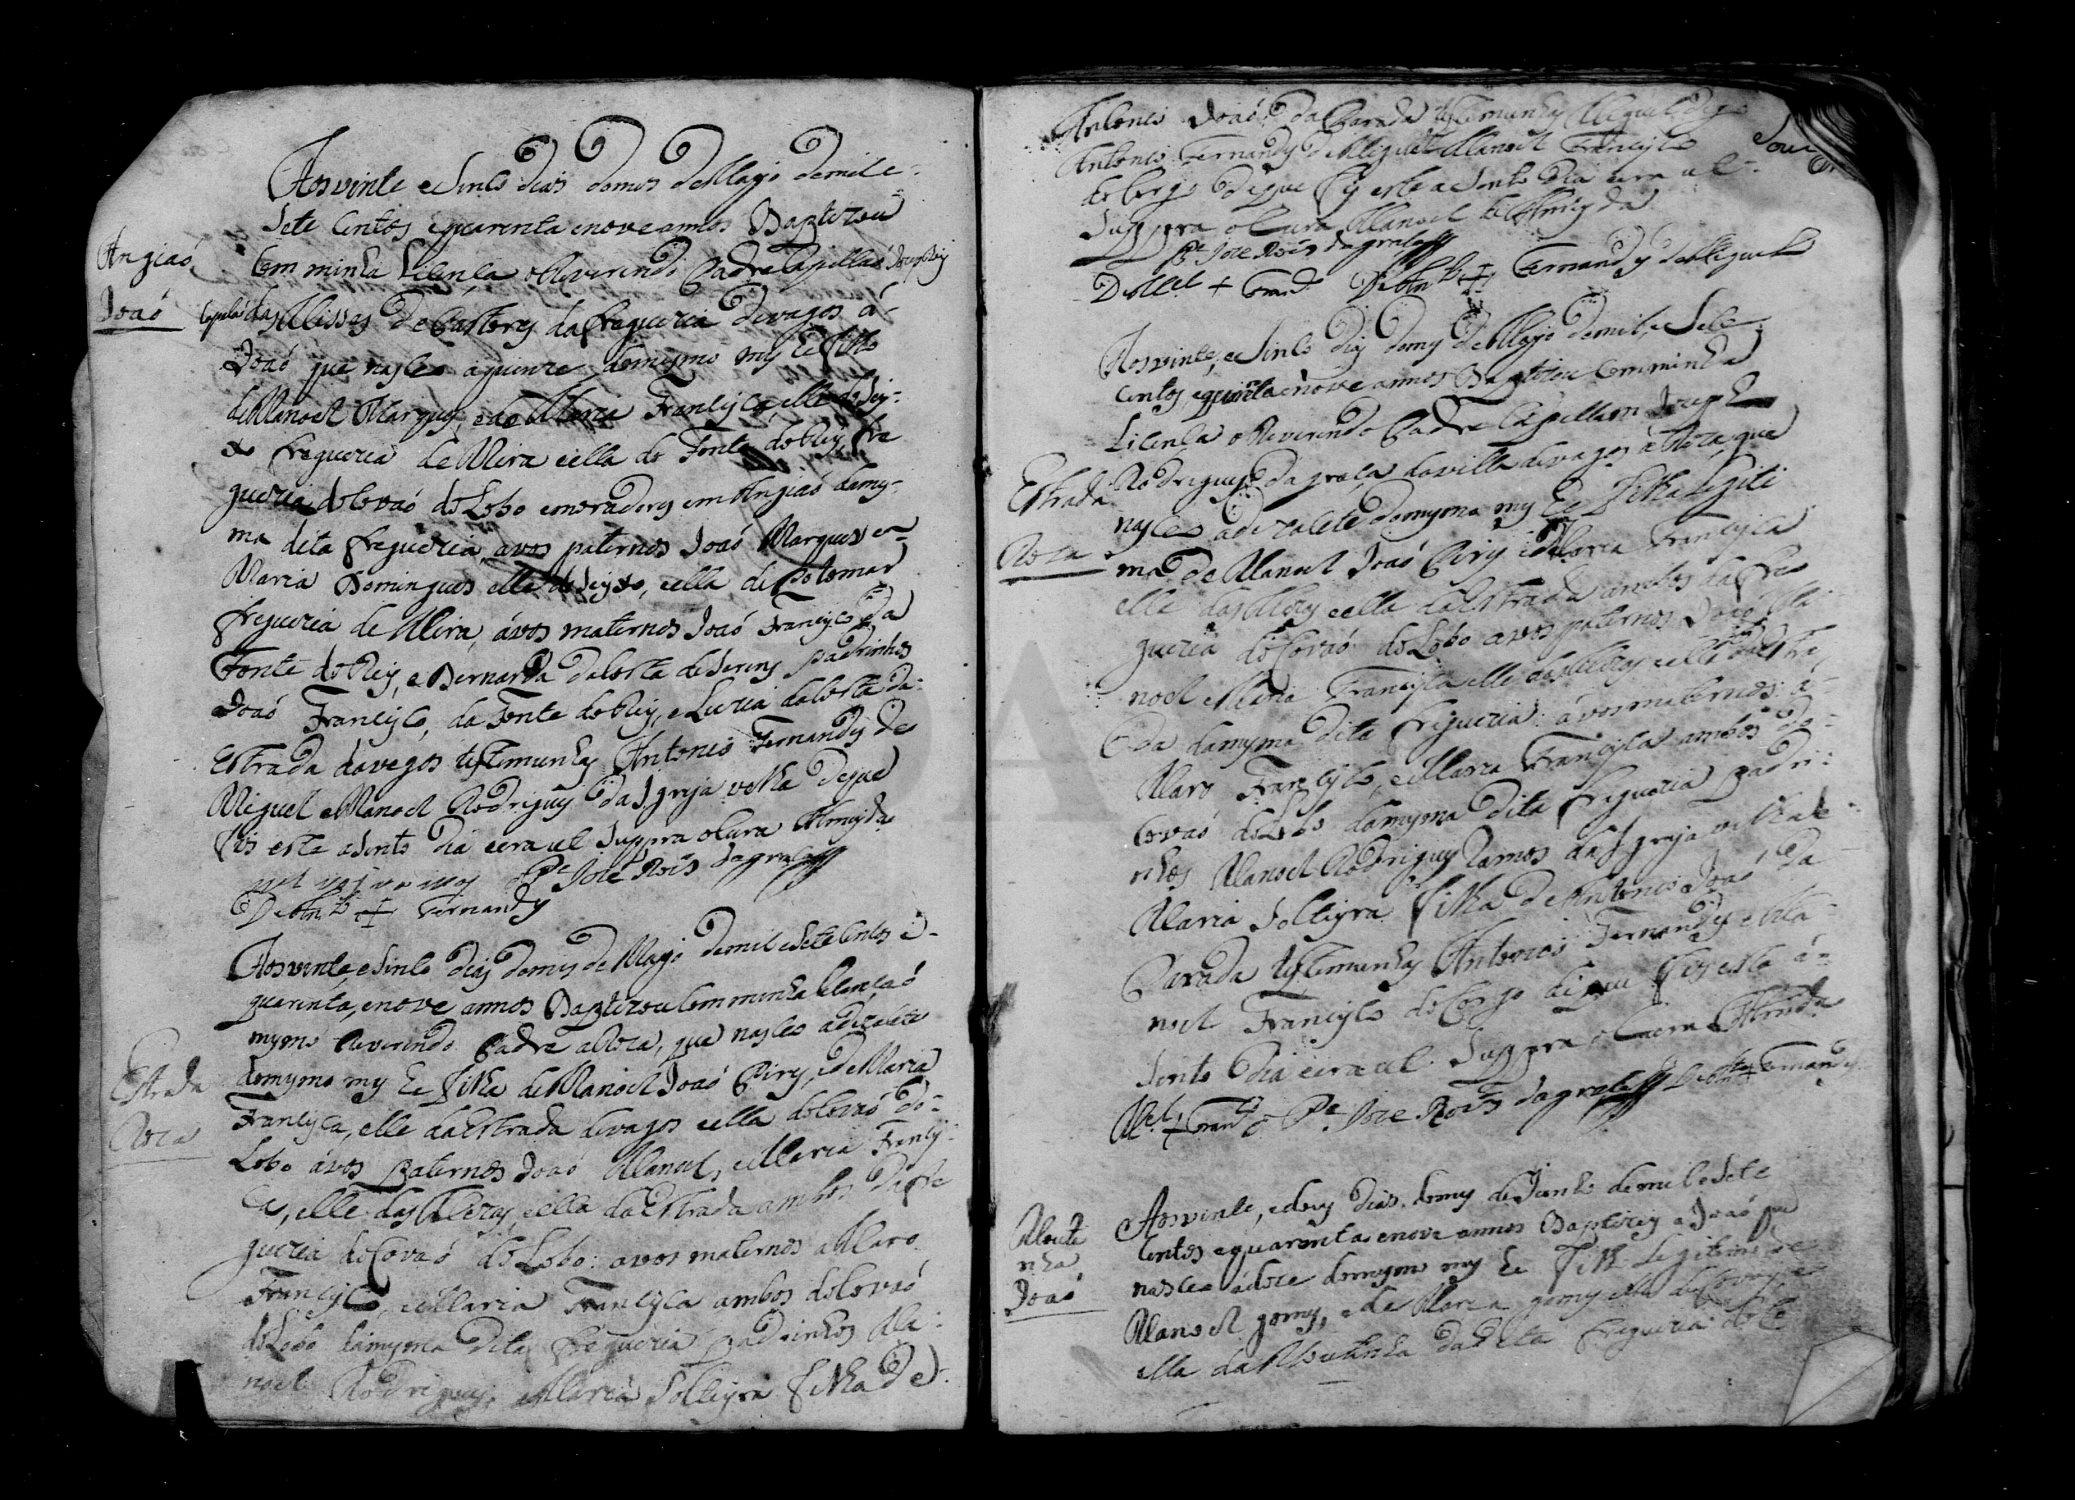 Angiaó
Joaó
Aos vinte e Sinco dias do mes de Mayo de mil e
Sete Centos e quarenta e nove annos Baptizou
Com minha Licença o Reverendo Padre Capellaó
das Missas de da freguezia de vagos á
Joaó que nasceo a quinze do mesmo mes he filho
de Manoel Marques, e de Maria Francisca, elle do Seis-
so freguezia de Mira e ella da Fonte do Rey, fre
guezia do Covaó do Lobo e moradores em Angiaó da mes-
ma dita freguezia, avos paternos Joaó Marques e
Maria Domingues elle do Seixo, e ella de Portomar
freguezia de Mira, ávos maternos Joaó Francisco da
Fonte do Rey, e Bernarda da Costa de padrinhos
Joaó Francisco, da Fonte do Rey, e Luzia da Costa da
Estrada de vagos testemunhas Antonio Fernandes de
Miguel e Manoel Rodrigues da Igreja velha de que
fis este asento dia era ut Supra o Cura Almeyda
o Pe Joze Roiz da graça
De Antº + Fernandes
Estrada
Roza
Aos vinte, e Sinco dias do mes de Mayo de mil e Sete Centos e
quarenta, e nove annos Baptizou Com minha licença ó
mesmo Reverendo Padre a Roza, que nasceo a dezasete
do mesmo mes he filha de Manoel Joaó Pires, e de Maria
Francisca, elle da Estrada de vagos e ella do Covaó do
Lobo ávos paternos Joaó Manoel, e Maria Francis-
ca, elle das e ella da Estrada ambos da fre
guezia do Covaó do Lobo: avos maternos Alvaro
Francisco, e Maria Francisca ambos do Covaó
do Lobo da mesma dita freguezia padrinhos Ma-
noel Rodrigues, e Maria Solteyra filha de
Antonio Joaó da Parada testemunhas Miguel de
Antonio Fernandes de Miguel e Manoel Francisco
do Corgo de que fis este asento dia era ut
Supra o Cura Manoel de Almeyda
Pe Joze Roiz da graça
De Mel + Franco De Antº + Fernandes de Miguel
Estrada
Roza
Aos vinte, e Sinco dias do mes de Mayo de mil, e Sete
Centos, e quarenta e nove annos Baptizou Com minha
Licença o Reverendo Padre Capellam Joseph
Rodrigues da graça da villa de vagos a Roza, que
nasceo a dezasete do mesmo mes he filha legiti
ma de Manoel Joaó Pires e Maria Francisca
elle das e ella da Estrada ambos da fre
guezia do Covaó do Lobo avos paternos Joaó Ma
noel e Maria Francisca elle das e ella da Estra
da da mesma dita freguezia: ávos maternos: a
lvaro Francisco, e Maria Francisca ambos do
Covaó do Lobo da mesma dita freguezia padri
nhos Manoel Rodrigues Ramos da Igreja velha e
Maria Solteyra filha de Antonio Joaó da
Parada testemunhas Antonio Fernandes e Ma
noel Francisco do Corgo de que fis este á
sento dia era ut Supra o Cura Almeyda
Mel + Franco o Pe Joze Roiz da graça De Antº + Fernandes
Moute
nha
Joaó
Aos vinte, e dous dias do mes de Junho de mil e Sete
Centos e quarenta e nove annos Baptizey a Joaó que
nasceo á doze do mesmo mes he filho legitimo de
Manoel gomes, e de Maria gomes elle de
ella da Moutinha da dita freguezia